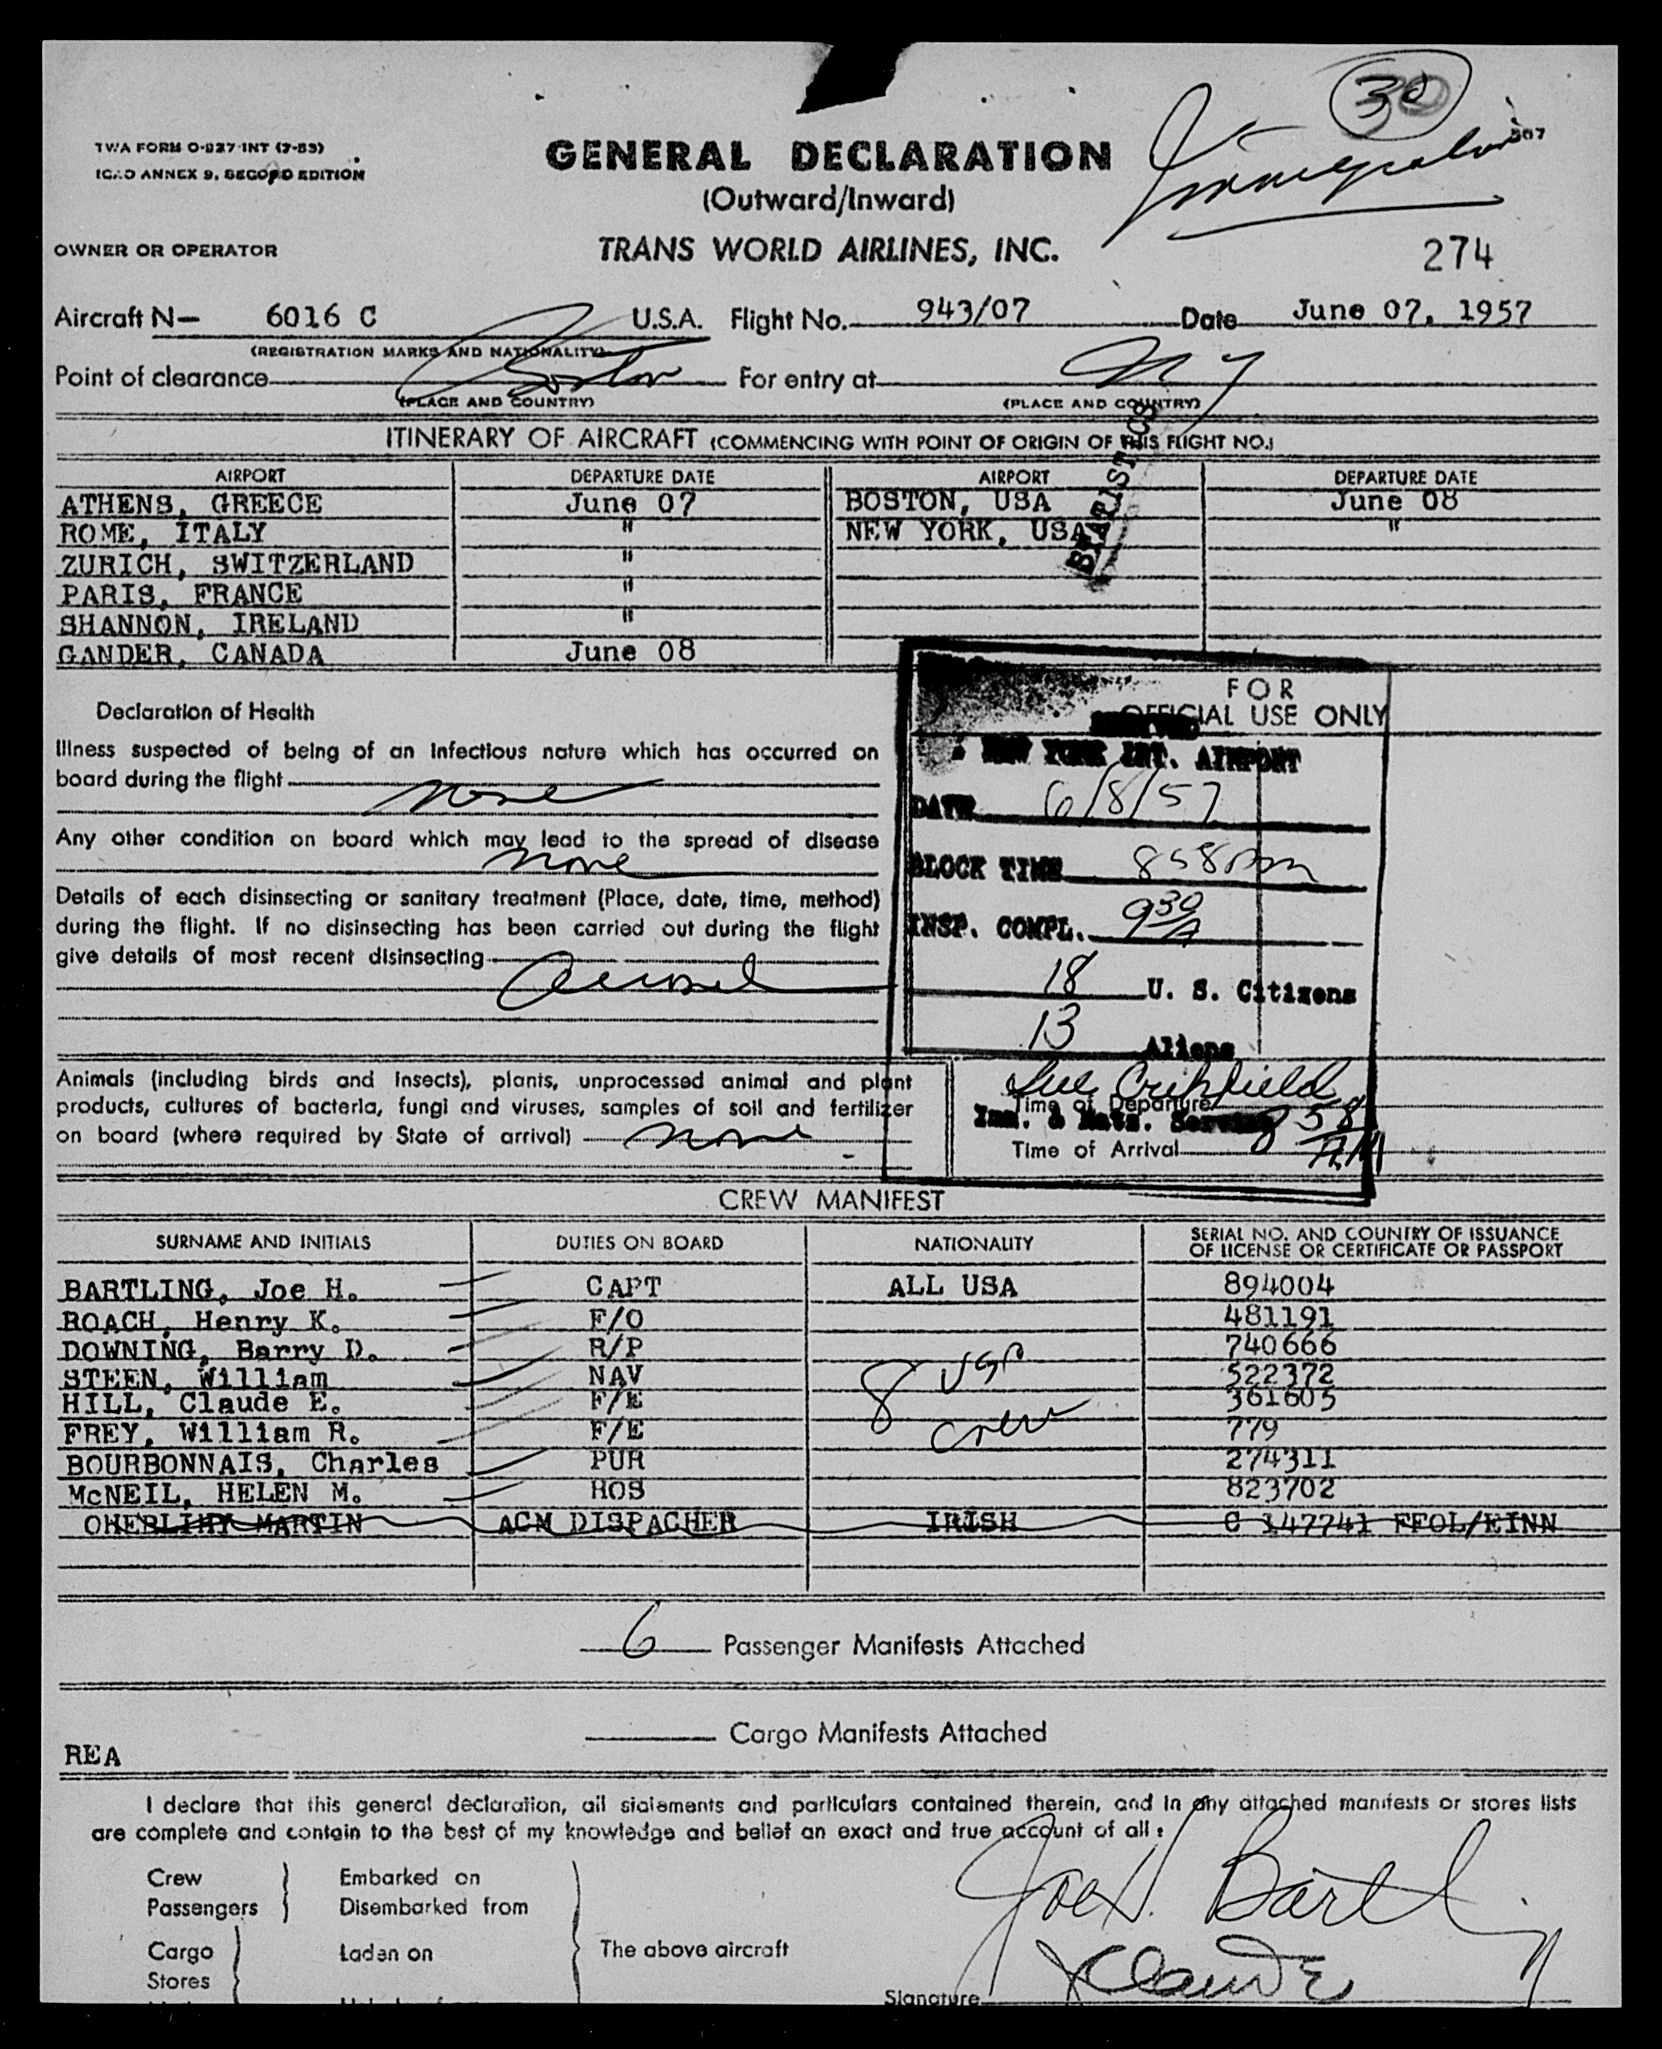 30
Immigration
507
TWA FORM O-927 INT (7-53)
ICAO ANNEX 9, SECOND EDITION
GENERAL DECLARATION
(Outward/Inward)
OWNER OR OPERATOR
TRANS WORLD AIRLINES, INC.
274
Aircraft N— 6016 C U.S.A. Flight No. 943/07 Date June 07, 1957
(REGISTRATION MARKS AND NATIONALITY)
Point of clearance Boston For entry at NY
(PLACE AND COUNTRY) (PLACE AND COUNTRY)
ITINERARY OF AIRCRAFT (COMMENCING WITH POINT OF ORIGIN OF THIS FLIGHT NO.)
STATISTICS
AIRPORT DEPARTURE DATE AIRPORT DEPARTURE DATE
ATHENS, GREECE June 07 BOSTON, USA June 08
ROME, ITALY " NEW YORK, USA "
ZURICH, SWITZERLAND "
PARIS, FRANCE "
SHANNON, IRELAND "
GANDER, CANADA June 08
Declaration of Health
Illness suspected of being of an infectious nature which has occurred on
board during the flight none
Any other condition on board which may lead to the spread of disease
none
Details of each disinsecting or sanitary treatment (Place, date, time, method)
during the flight. If no disinsecting has been carried out during the flight
give details of most recent disinsecting
aerosol
FOR
OFFICIAL USE ONLY
NEW YORK INT. AIRPORT
DATE 6/8/57
BLOCK TIME 858 am
INSP. COMPL. 930 A
18 U. S. Citizens
13 Aliens
Imm. & Natz. Service
Time of Departure
Time of Arrival 858 AM
Animals (including birds and insects), plants, unprocessed animal and plant
products, cultures of bacteria, fungi and viruses, samples of soil and fertilizer
on board (where required by State of arrival) none
CREW MANIFEST
SURNAME AND INITIALS DUTIES ON BOARD NATIONALITY SERIAL NO. AND COUNTRY OF ISSUANCE
OF LICENSE OR CERTIFICATE OR PASSPORT
BARTLING, Joe H. CAPT ALL USA 894004
ROACH, Henry K. F/O 481191
DOWNING, Barry D. R/P 740666
STEEN, William NAV 8 USA 522372
HILL, Claude E. F/E 361605
FREY, William R. F/E crew 779
BOURBONNAIS, Charles PUR 274311
McNEIL, HELEN M. HOS 823702
OHERLIHY MARTIN ACM DISPACHER IRISH C 147741 FFOL/EINN
6 Passenger Manifests Attached
Cargo Manifests Attached
REA
I declare that this general declaration, all statements and particulars contained therein, and in any attached manifests or stores lists
are complete and contain to the best of my knowledge and belief an exact and true account of all:
Crew Embarked on
Passengers Disembarked from
Cargo Laden on The above aircraft
Stores
Joe H. Bartling
Claude E
Signature